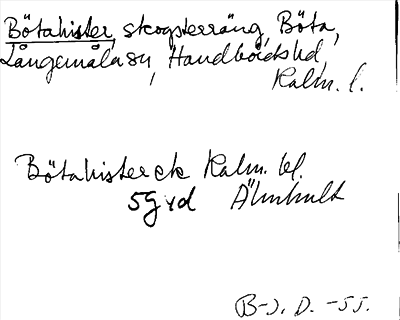 Bötahister, skogsterräng, Böta,
Långemåla sn, Handbörds hd,
Kalm. l.
Bötahister ek Kalm. bl.
5g rd Älmhult
B-J. D. -55.